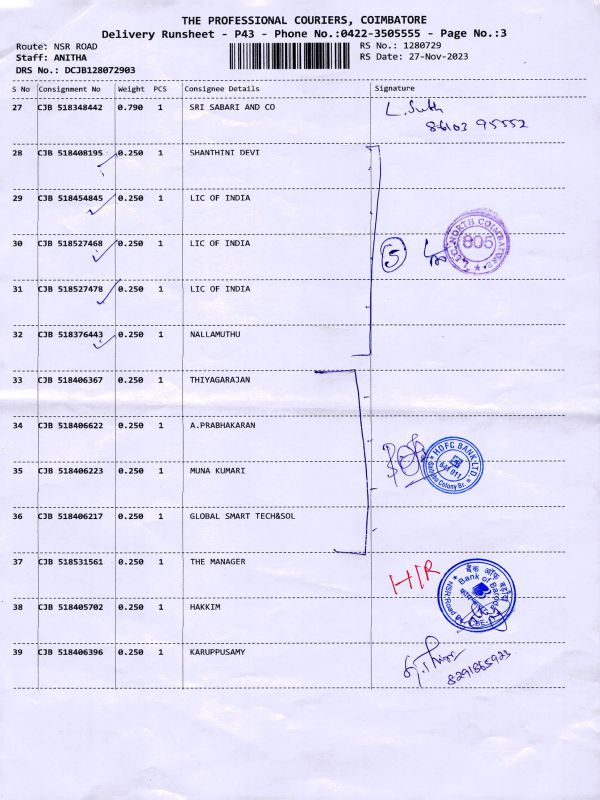 THE PROFESSIONAL COURIERS, COIMBATORE
Delivery Runsheet - P43 - Phone No.:0422-3505555 - Page No.:3
Route: NSR ROAD RS No.: 1280729
Staff: ANITHA RS Date: 27-Nov-2023
DRS No.: DCJB128072903
S No Consignment No Weight PCS Consignee Details Signature
27 CJB 518348442 0.790 1 SRI SABARI AND CO
86103 95552
28 CJB 518408195 0.250 1 SHANTHINI DEVI
29 CJB 518454845 0.250 1 LIC OF INDIA
30 CJB 518527468 0.250 1 LIC OF INDIA
5
NORTH COIMBATORE
805
31 CJB 518527478 0.250 1 LIC OF INDIA
32 CJB 518376443 0.250 1 NALLAMUTHU
33 CJB 518406367 0.250 1 THIYAGARAJAN
34 CJB 518406622 0.250 1 A.PRABHAKARAN
HDFC BANK LTD
35 CJB 518406223 0.250 1 MUNA KUMARI
36 CJB 518406217 0.250 1 GLOBAL SMART TECH&SOL
37 CJB 518531561 0.250 1 THE MANAGER
H/R
बैंक ऑफ़ बड़ौदा
Bank of Baroda
38 CJB 518405702 0.250 1 HAKKIM
39 CJB 518406396 0.250 1 KARUPPUSAMY
8291865923